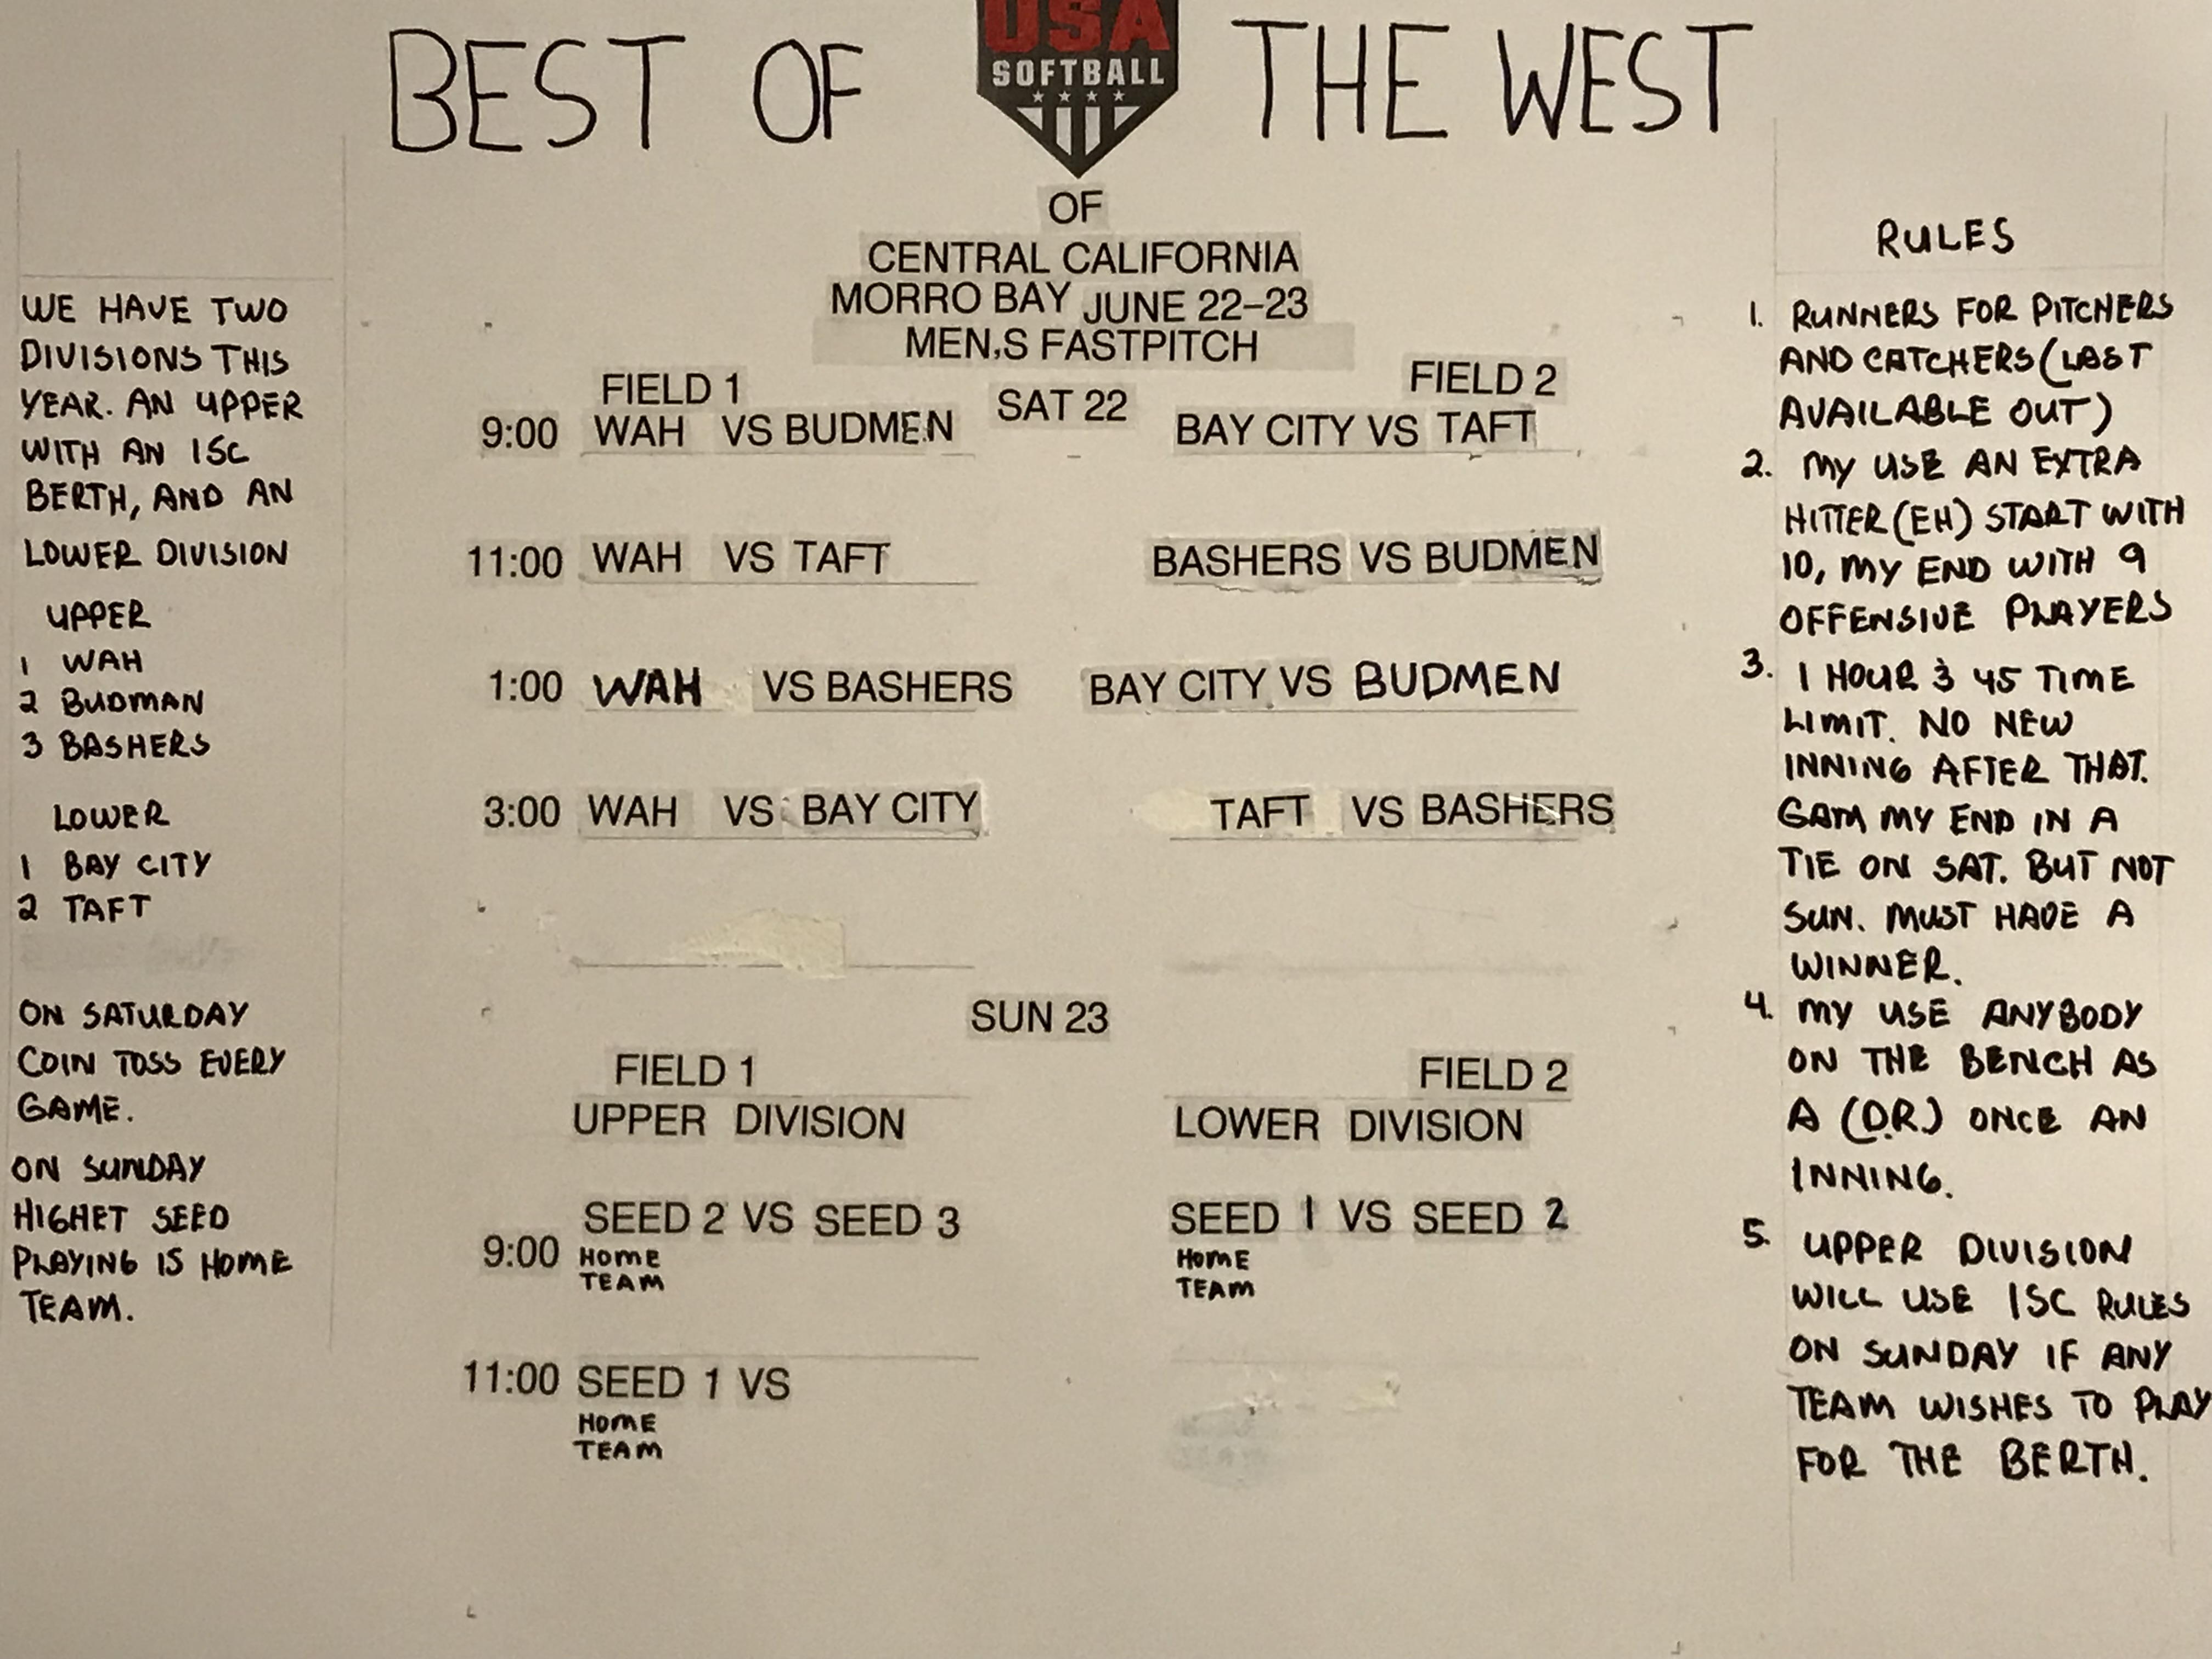 BEST OF THE WEST
USA
SOFTBALL
OF
CENTRAL CALIFORNIA
MORRO BAY JUNE 22-23
MEN,S FASTPITCH
WE HAVE TWO
DIVISIONS THIS
YEAR. AN UPPER
WITH AN ISC
BERTH, AND AN
LOWER DIVISION
UPPER
1 WAH
2 BUDMAN
3 BASHERS
LOWER
1 BAY CITY
2 TAFT
ON SATURDAY
COIN TOSS EVERY
GAME.
ON SUNDAY
HIGHET SEED
PLAYING IS HOME
TEAM.
SAT 22
FIELD 1 FIELD 2
9:00 WAH VS BUDMEN BAY CITY VS TAFT
11:00 WAH VS TAFT BASHERS VS BUDMEN
1:00 WAH VS BASHERS BAY CITY VS BUDMEN
3:00 WAH VS BAY CITY TAFT VS BASHERS
SUN 23
FIELD 1 FIELD 2
UPPER DIVISION LOWER DIVISION
SEED 2 VS SEED 3 SEED 1 VS SEED 2
9:00 HOME HOME
TEAM TEAM
11:00 SEED 1 VS
HOME
TEAM
RULES
1. RUNNERS FOR PITCHERS
AND CATCHERS (LAST
AVAILABLE OUT)
2. MY USE AN EXTRA
HITTER (EH) START WITH
10, MY END WITH 9
OFFENSIVE PLAYERS
3. 1 HOUR & 45 TIME
LIMIT. NO NEW
INNING AFTER THAT.
GAM MY END IN A
TIE ON SAT. BUT NOT
SUN. MUST HAVE A
WINNER.
4. MY USE ANYBODY
ON THE BENCH AS
A (D.R.) ONCE AN
INNING.
5. UPPER DIVISION
WILL USE ISC RULES
ON SUNDAY IF ANY
TEAM WISHES TO PLAY
FOR THE BERTH.